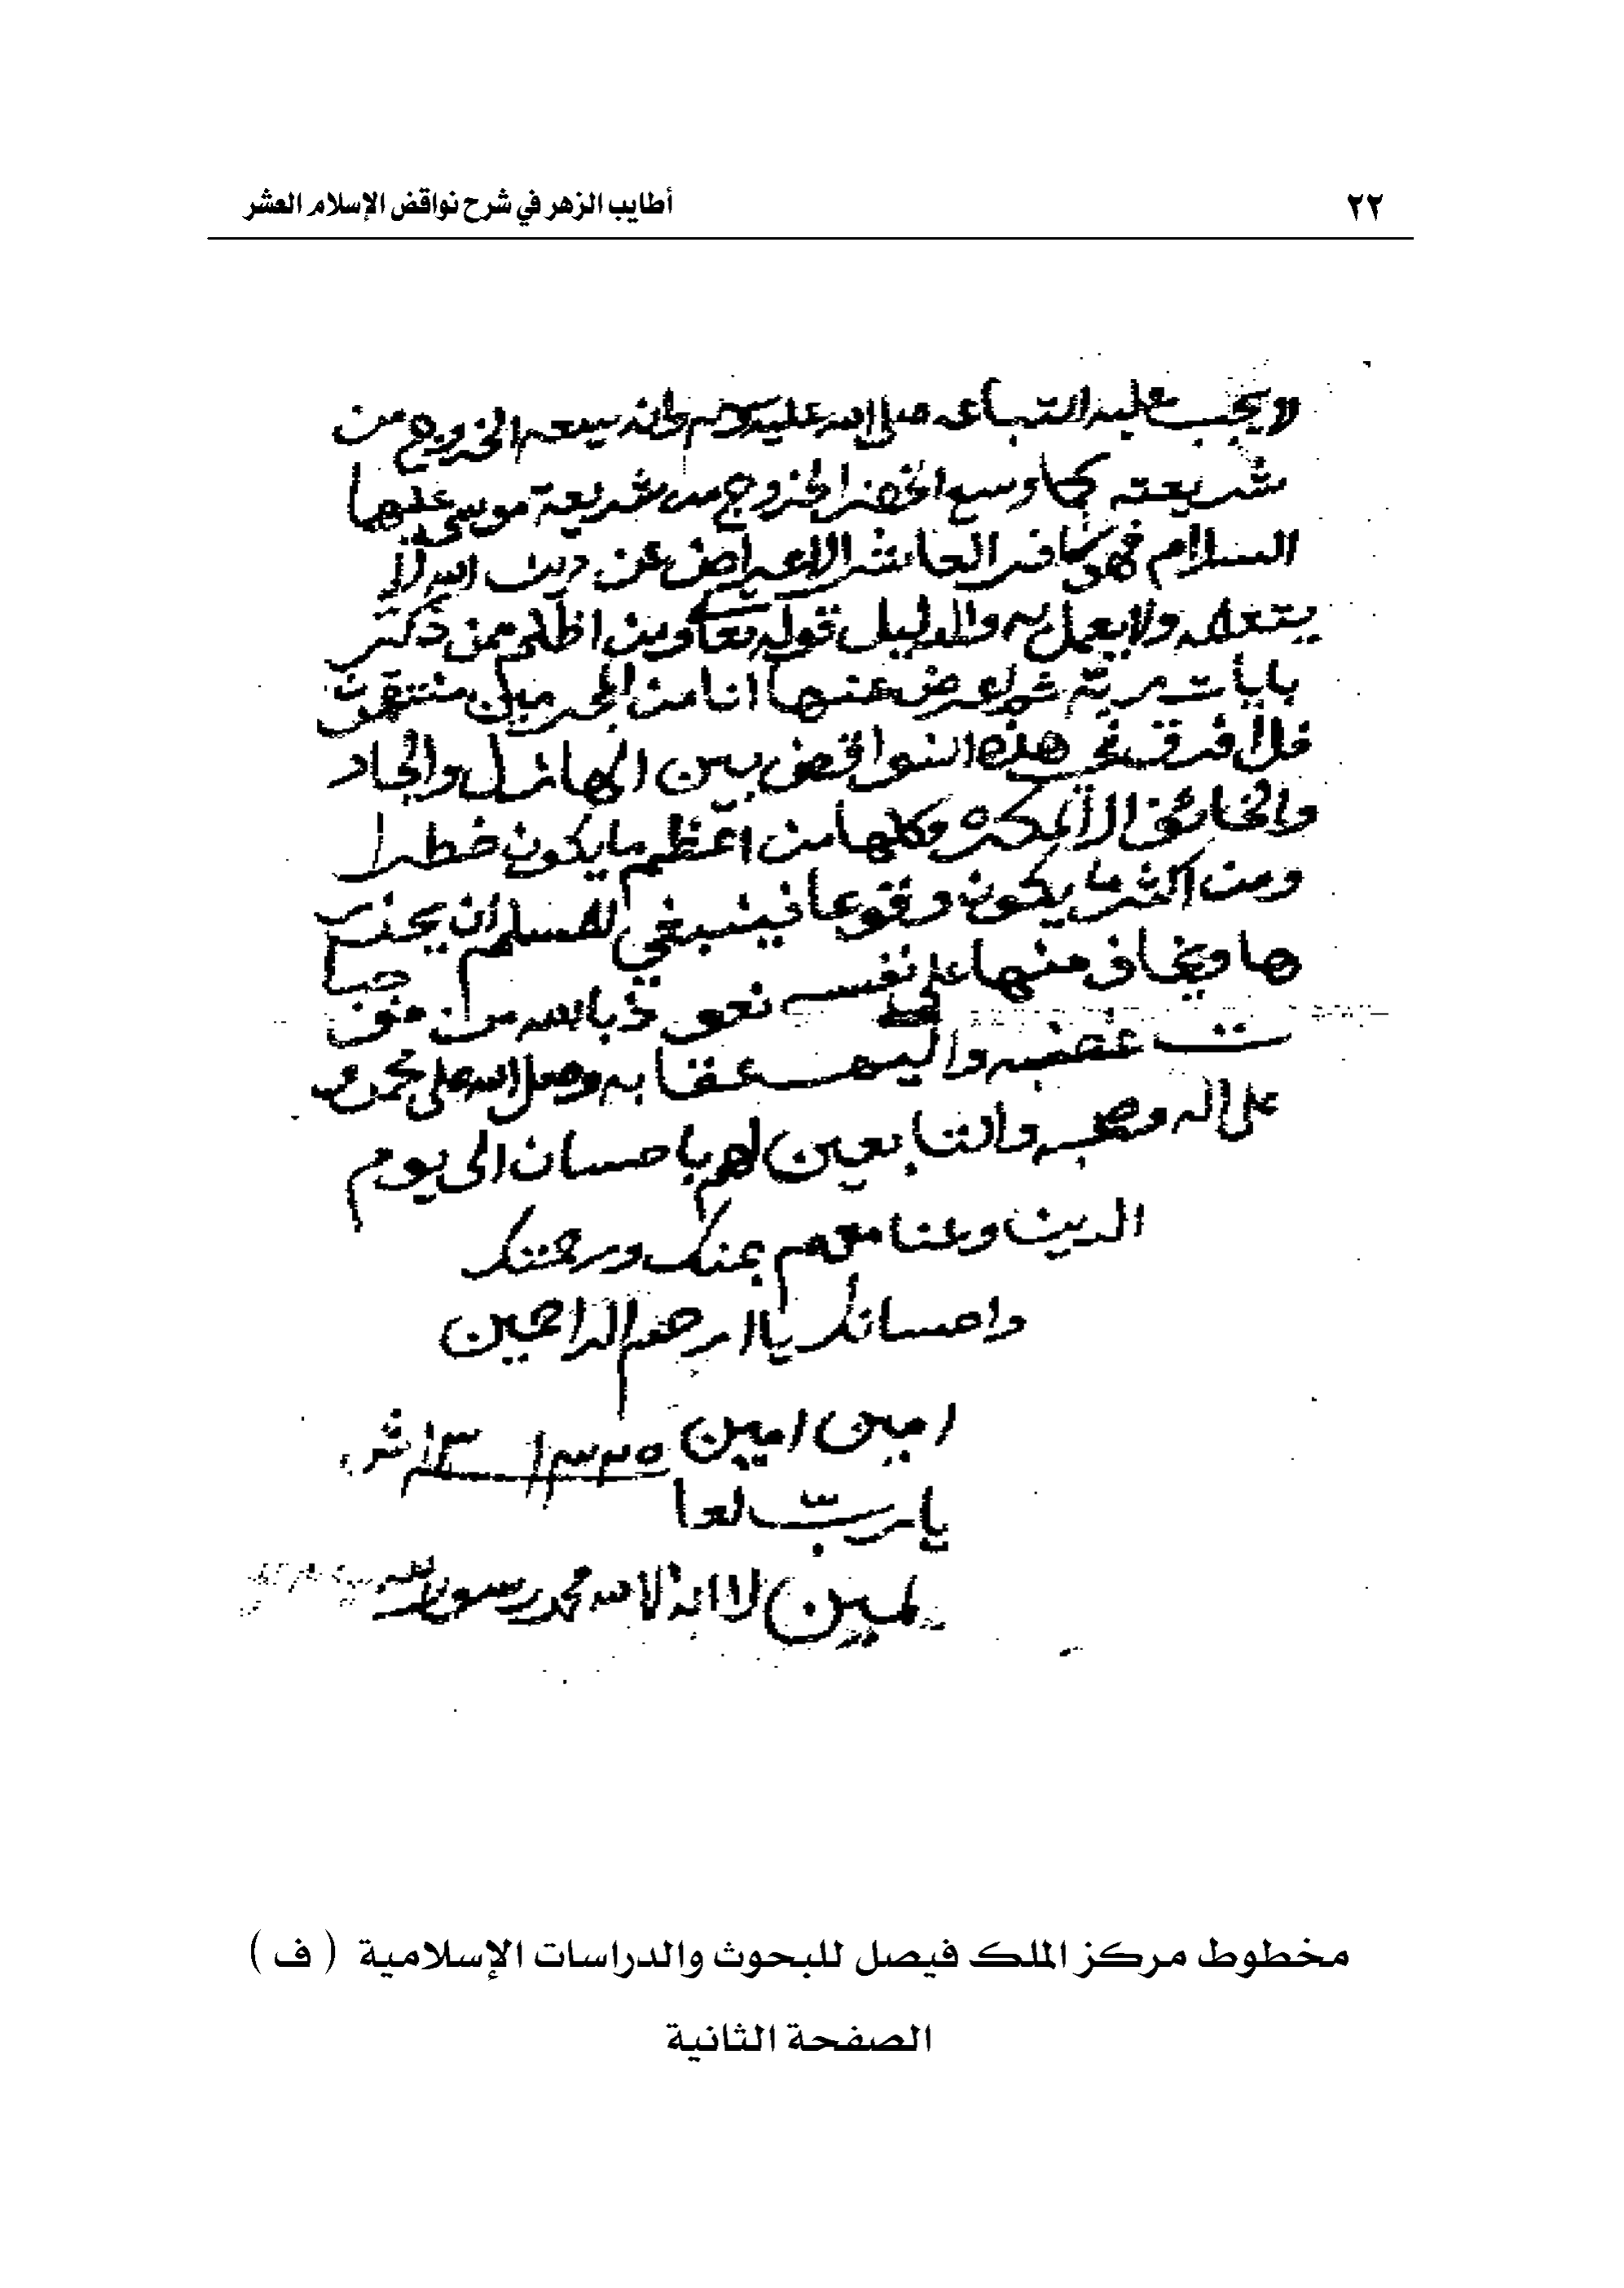 ٢٢
أطايب الزهر في شرح نواقض الإسلام العشر
لا يجب عليه اتباعه صلى الله عليه وسلم وانه يسعه الخروج من
شريعته كما وسع الخضر الخروج من شريعة موسى عليها
السلام فهو كافر العاشر الاعراض عن دين الله لا
يتعلمه ولا يعمل به والدليل قوله تعا ومن اظلم ممن ذكر
بايات ربه ثم اعرض عنها انا من المجرمين منتقمون
فلا فرق في هذه النواقض بين الهازل والجاد
والخائف الا المكره وكلها من اعظم ما يكون خطرا
ومن اكثر ما يكون وقوعا فينبغي للمسلم ان يحذر
ها ويخاف منها على نفسه نعوذ بالله من موجبا
ت غضبه واليم عقابه وصل الله على محمد و
على اله وصحبه والتابعين لهم باحسان الى يوم
الدين وعنا معهم بمنك ورحمتك
واحسانك يا ارحم الراحمين
امين امين ١٣٣٥
يا رب لعا
لمين لا اله الا الله محمد رسول الله
مخطوط مركز الملك فيصل للبحوث والدراسات الإسلامية ( ف )
الصفحة الثانية